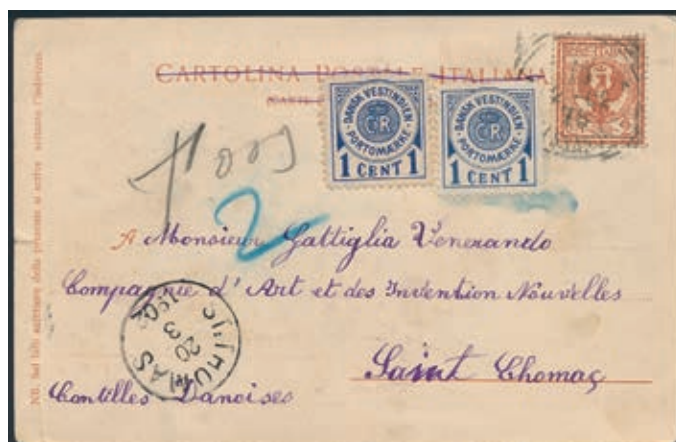 CARTOLINA POSTALE ITALIANA
DANSK VESTINDIEN
CR
PORTOMÆRKE
1 CENT 1
DANSK VESTINDIEN
CR
PORTOMÆRKE
1 CENT 1
2
A Monsieur Gattiglia Venerando
Compagnie d'Art et des Invention Nouvelles
Saint Thomas
ST. THOMAS
20
3
1902
Antilles Danoises
NB. Sul lato anteriore della presente si scrive soltanto l'indirizzo.